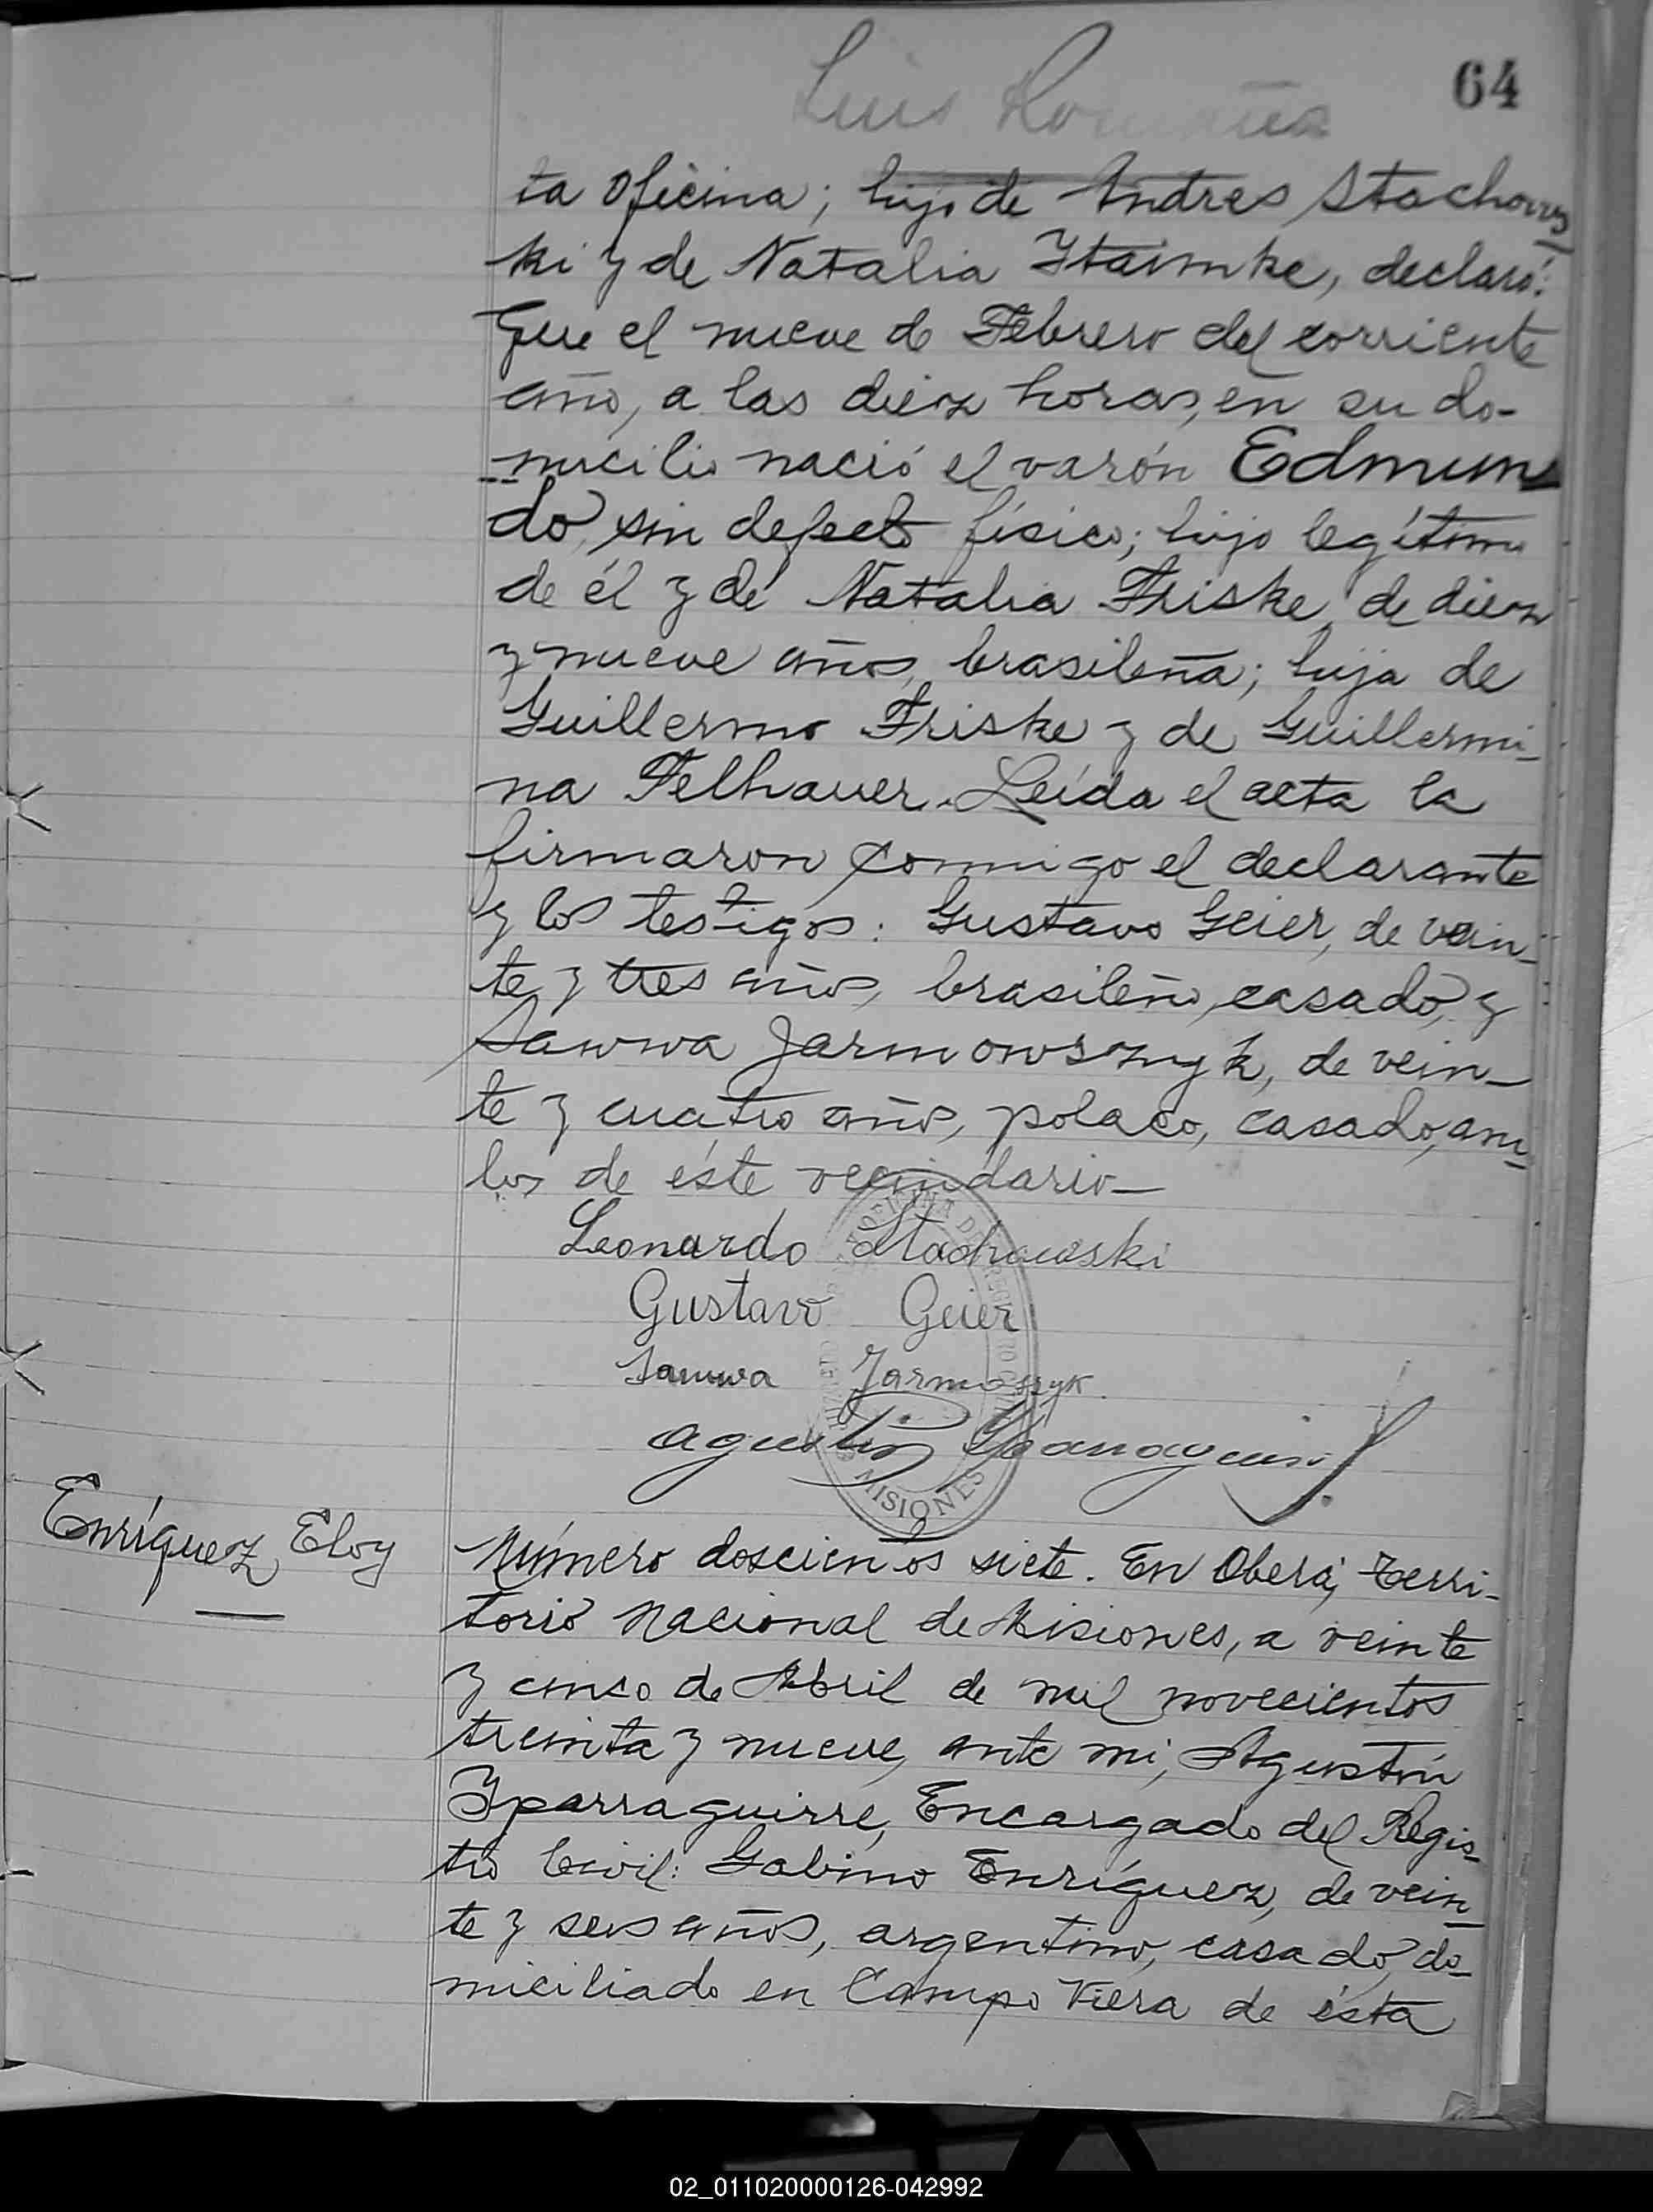 64
Luis Romaña
ta oficina; hijo de Andres Stachows
ki y de Natalia Ytaimke, declaró:
Que el nueve de Febrero del corriente
año, a las diez horas, en su do-
micilio nació el varón Edmun
do, sin defecto físico; hijo legítimo
de él y de Natalia Friske, de diez
y nueve años, brasileña; hija de
Guillermo Friske y de Guillermi-
na Felhauer. Leída el acta la
firmaron conmigo el declarante
y los testigos: Gustavo Geier, de vein-
te y tres años, brasileño, casado, y
Sawwa Jarmowsznyk, de vein-
te y cuatro años, polaco, casado, am-
bos de éste vecindario-
Leonardo Stachowski
Gustavo Geier
Sawwa
MISIONES
Enríquez, Eloy
Número doscientos siete. En Oberá, Terri-
torio Nacional de Misiones, a veinte
y cinco de Abril de mil novecientos
treinta y nueve, ante mi, Agustín
Yparraguirre, Encargado del Regis-
tro Civil: Gabino Enríquez, de vein-
te y seis años, argentino, casado, do-
miciliado en Campo Viera de ésta
02_011020000126-042992